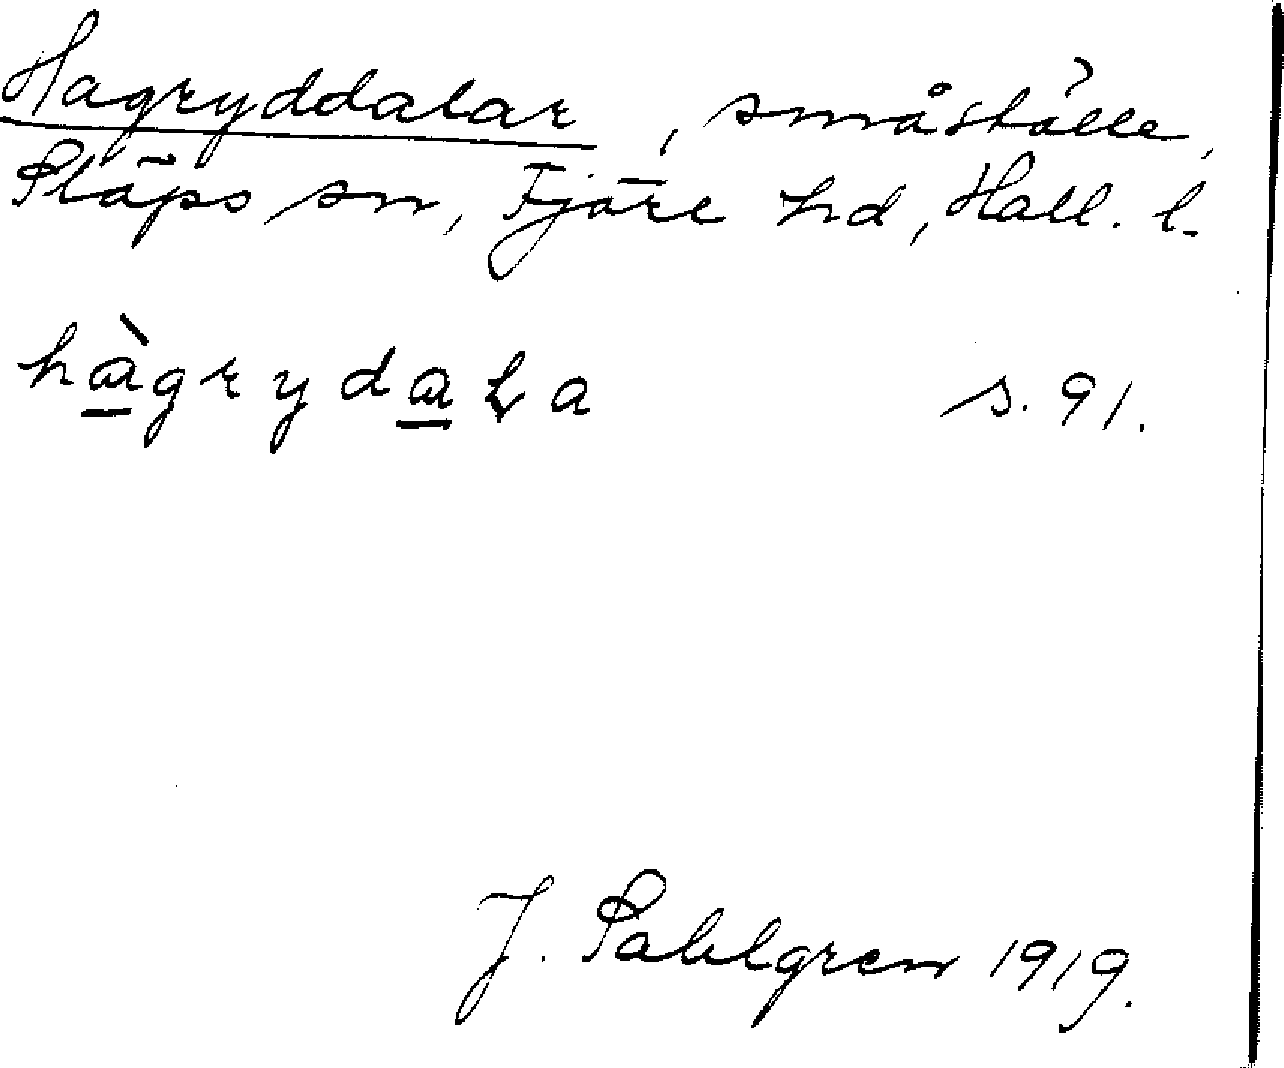 Hagryddalar, småställe,
Släps sn, Fjäre hd, Hall. l.
hàgrydaLa s. 91.
J. Sahlgren 1919.